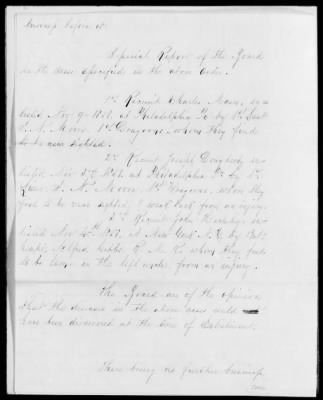 business before it.
Special Report of the Board
in the cases specified in the above order.
1st Recruit Charles Mann, en-
listed Nov 9 at Philadelphia Pa by 1st Lieut
Moore 1st Dragoons, whom they find
to be near sighted.
2nd Recruit Joseph Dougherty en-
listed Nov at Philadelphia Pa by 1st
Lieut Moore 1st Dragoons, whom they
find to be near sighted, & weak back from an injury.
3rd Recruit John en-
listed Nov at New York N.Y. by Bvt
Capt Alfred Gibbs R. M. R. whom they find
to be lame in the left ankle, from an injury.
The Board are of the opinion
that the diseases in the above cases could
have been discovered at the time of Enlistment.
There being no further business